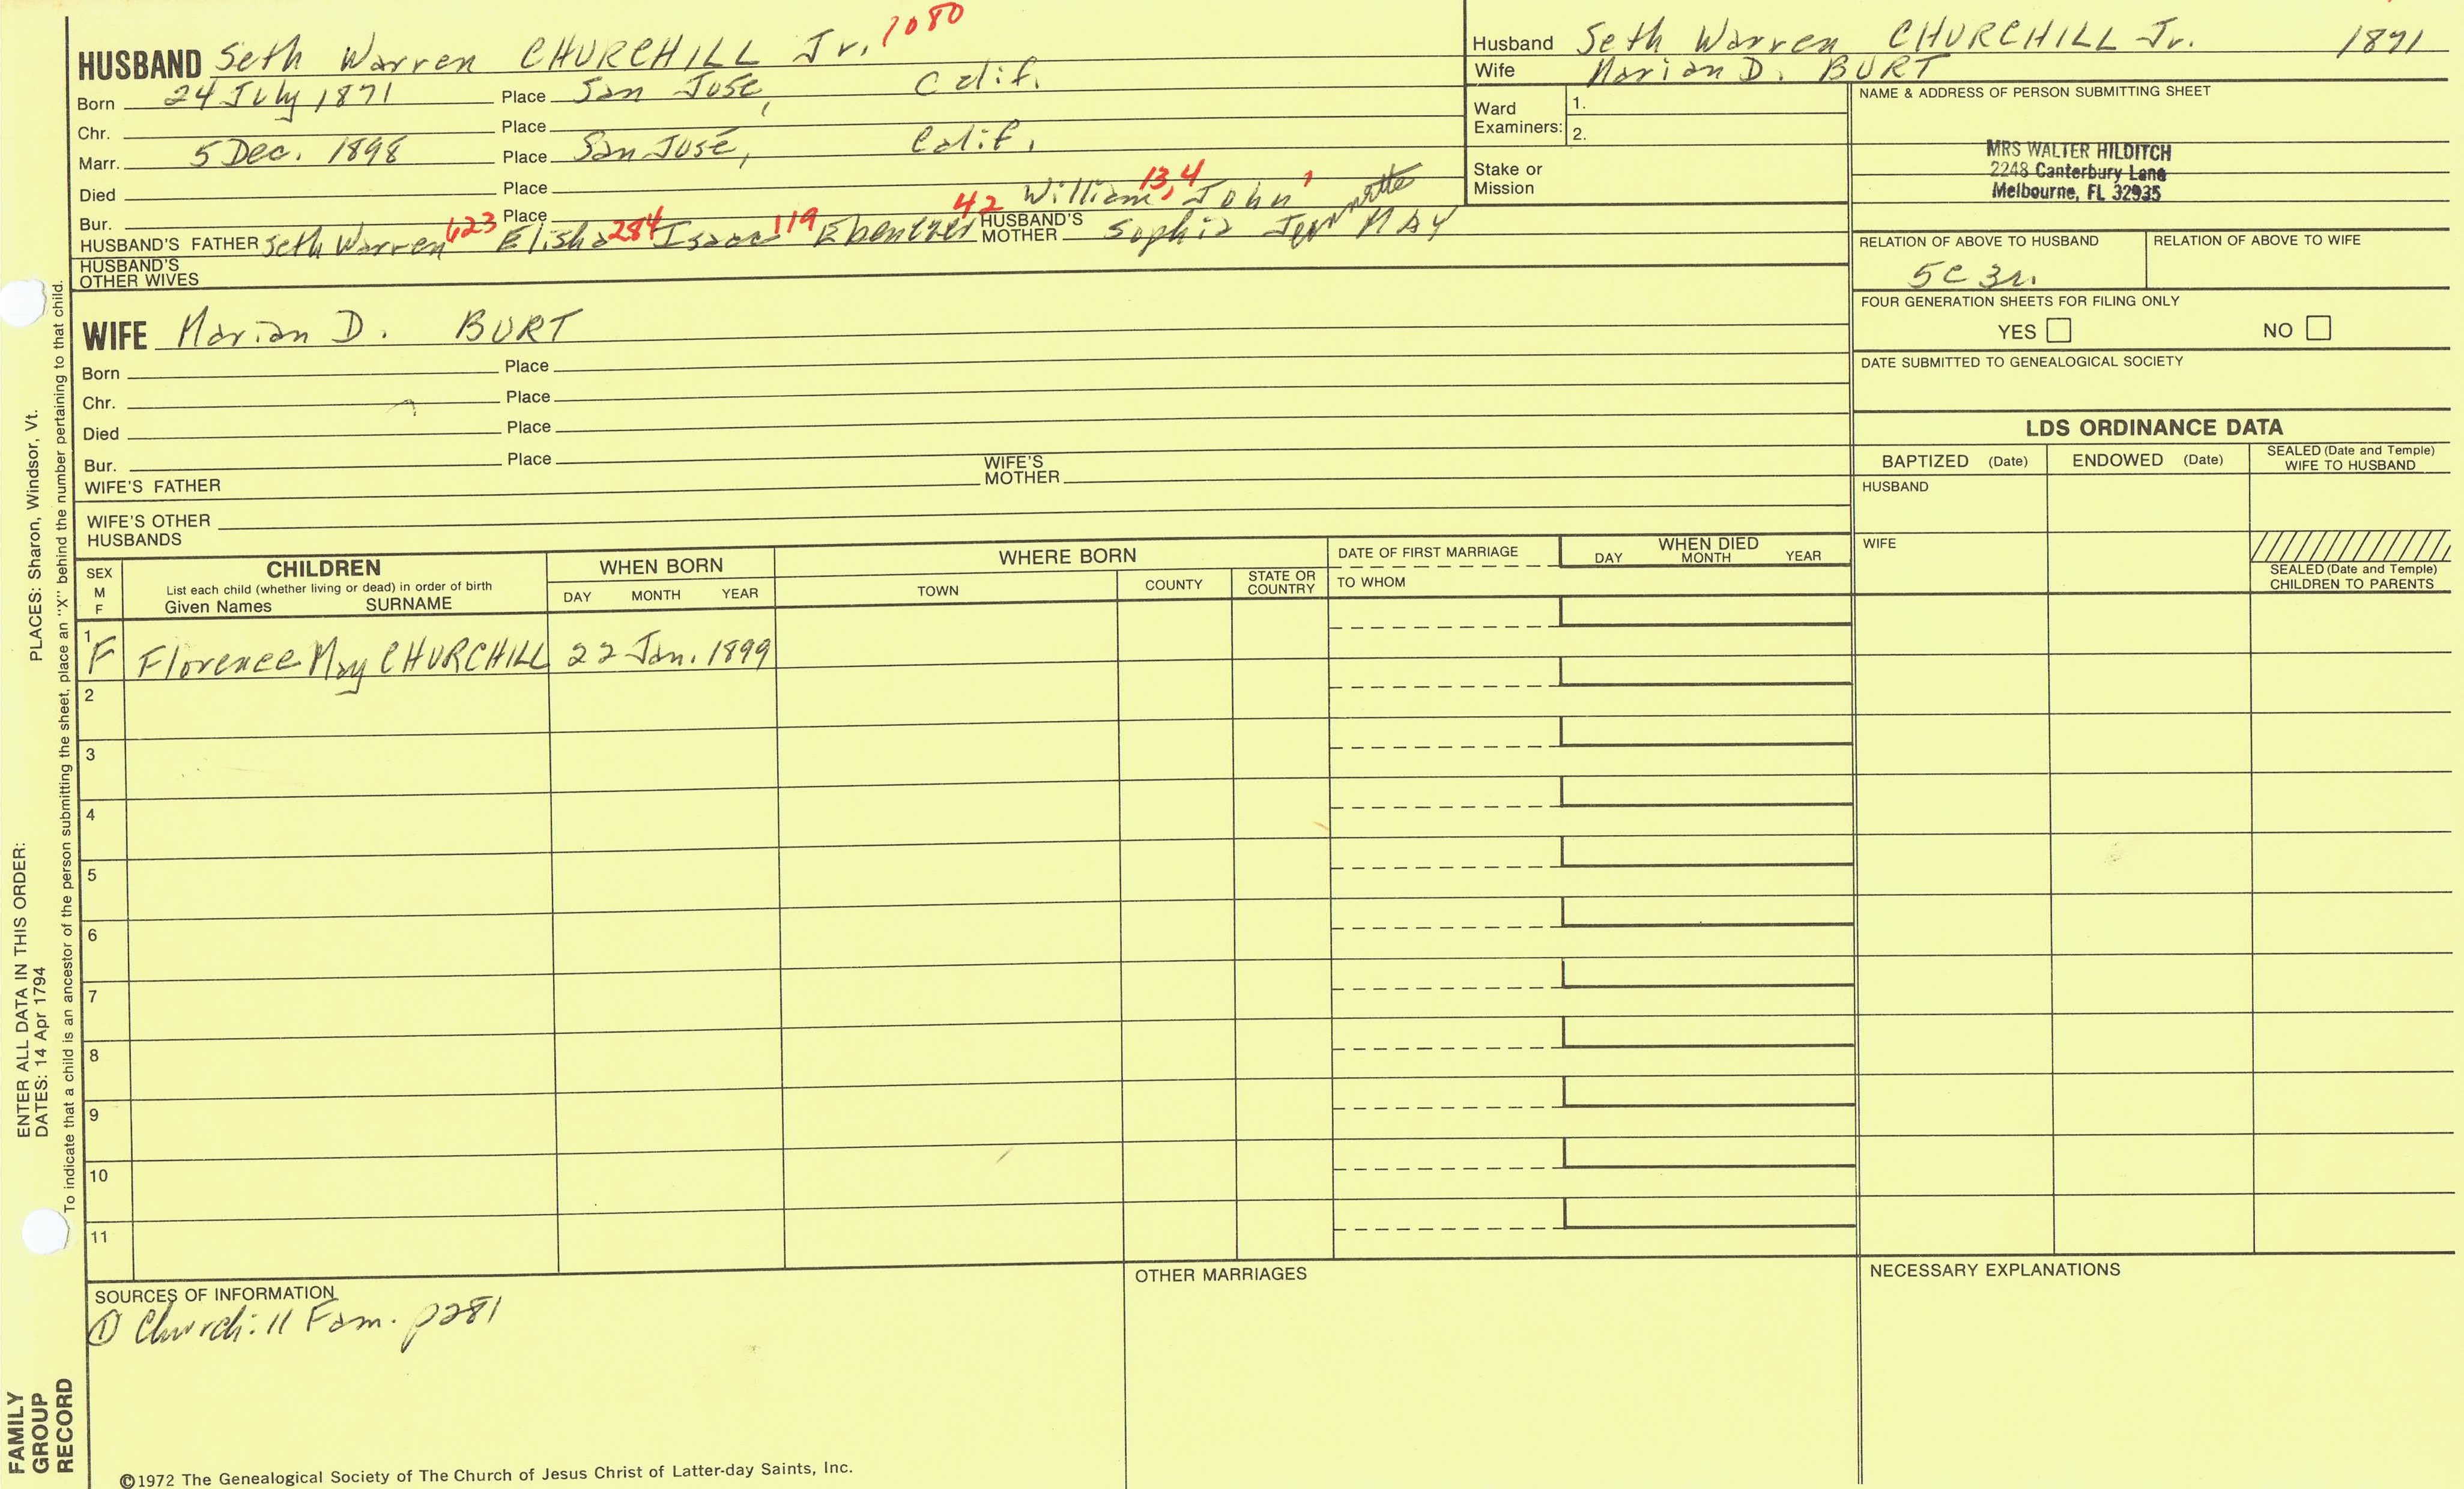 HUSBAND Seth Warren CHURCHILL Jr. 1080
Born 24 July 1871 Place San José, Calif.
Chr. Place
Marr. 5 Dec. 1898 Place San José, Calif.
Died Place
Bur. Place
William 13, 4 John 1
HUSBAND'S FATHER Seth Warren 623 Elisha 284 Isaac 119 Ebenezer 42 HUSBAND'S MOTHER Sophia MAY
HUSBAND'S OTHER WIVES
WIFE Marian D. BURT
Born Place
Chr. Place
Died Place
Bur. Place
WIFE'S FATHER WIFE'S MOTHER
WIFE'S OTHER HUSBANDS
Husband Seth Warren CHURCHILL Jr. 1871
Wife Marian D. BURT
Ward Examiners: 1.
2.
Stake or Mission
NAME & ADDRESS OF PERSON SUBMITTING SHEET
MRS WALTER HILDITCH
2248 Canterbury Lane
Melbourne, FL 32935
RELATION OF ABOVE TO HUSBAND RELATION OF ABOVE TO WIFE
5C 3r.
FOUR GENERATION SHEETS FOR FILING ONLY
YES NO
DATE SUBMITTED TO GENEALOGICAL SOCIETY
LDS ORDINANCE DATA
BAPTIZED (Date) ENDOWED (Date) SEALED (Date and Temple) WIFE TO HUSBAND
HUSBAND
WIFE
SEALED (Date and Temple) CHILDREN TO PARENTS
SEX M F
CHILDREN
List each child (whether living or dead) in order of birth
Given Names SURNAME
WHEN BORN
DAY MONTH YEAR
WHERE BORN
TOWN COUNTY STATE OR COUNTRY
DATE OF FIRST MARRIAGE
TO WHOM
WHEN DIED
DAY MONTH YEAR
1 F Florence May CHURCHILL 22 Jan. 1899
2
3
4
5
6
7
8
9
10
11
SOURCES OF INFORMATION
① Churchill Fam. p281
OTHER MARRIAGES
NECESSARY EXPLANATIONS
©1972 The Genealogical Society of The Church of Jesus Christ of Latter-day Saints, Inc.
FAMILY GROUP RECORD
ENTER ALL DATA IN THIS ORDER:
DATES: 14 Apr 1794
PLACES: Sharon, Windsor, Vt.
To indicate that a child is an ancestor of the person submitting the sheet, place an "X" behind the number pertaining to that child.